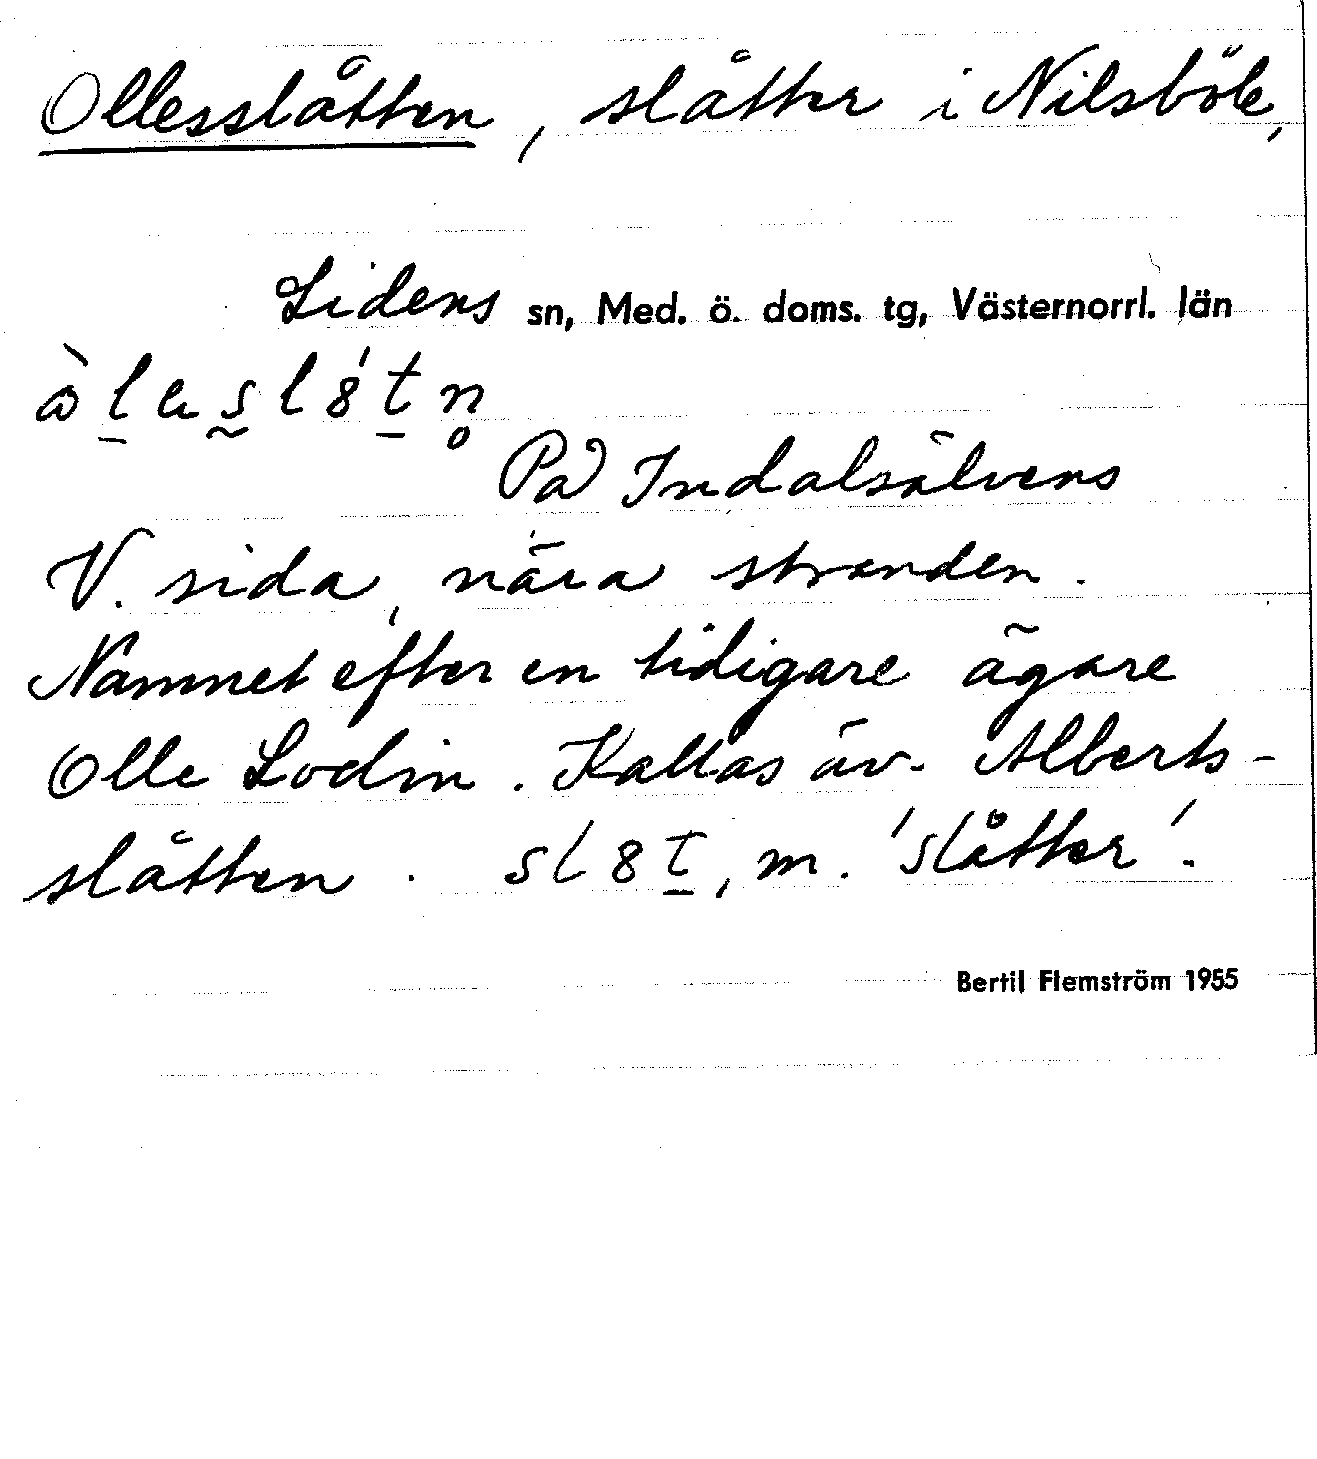 Ollesslåtten, slåtter i Nilsböle,
Lidens sn, Med. ö. doms. tg, Västernorrl. län
På Indalsälvens
V. sida, nära stranden.
Namnet efter en tidigare ägare
Olle Lodin. Kallas äv. Alberts-
slåtten. sl8t, m. 'slåtter'.
Bertil Flemström 1955